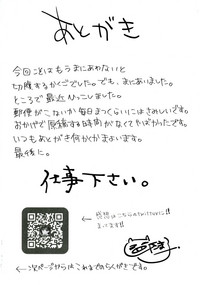 あとがき
今回ことはもうまにあわないと
切腹するかくごでした。でも、まにあいました。
ところで最近ひっこしました。
郵便がこないか毎日まっくらいにはさみしいです。
おかげで原稿する時間がなくてやばかったです。
いつもあとがき何かかまよいます。
最後に。
仕事下さい。
感想はこちらのtwitterに!!
まってます!!
←次ページからはこれまでのらくがきです。